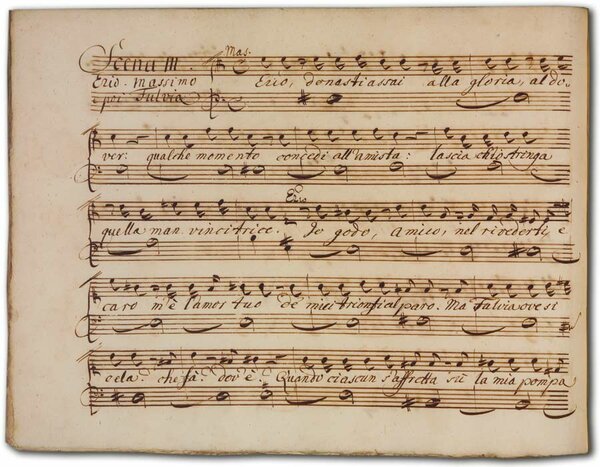 Scena III. Mas.
Ezio. Massimo Ezio, donasti assai alla gloria, al do,
e poi Fulvia
ver: qualche momento concedi all'amista: lascia ch'io stringa
Ezio
quella man vincitrice. Io godo, Amico, nel rivederti, e
caro m'è l'amor tuo de miei trionfi al paro. Ma Fulvia ove si
cela? che fà? dov'è? Quando ciascun s'affretta sù la mia pompa